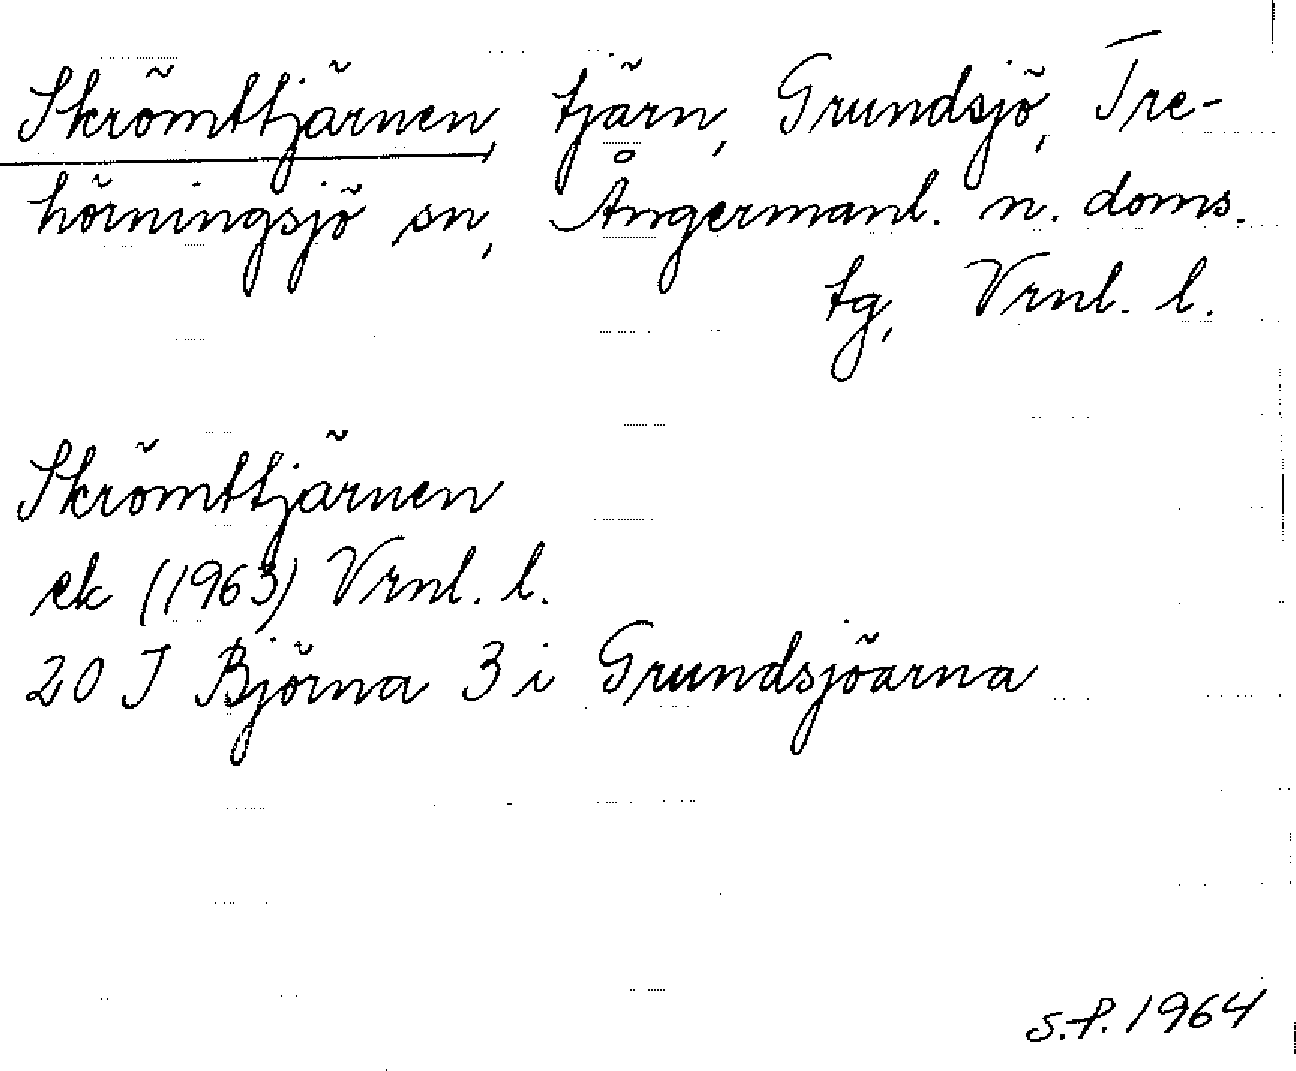 Skrömttjärnen, tjärn, Grundsjö, Tre-
hörningsjö sn, Ångermanl. n. doms.
tg, Vrnl. l.
Skrömttjärnen
ek (1963) Vrnl. l.
20 J Björna 3 i Grundsjöarna
S.P. 1964